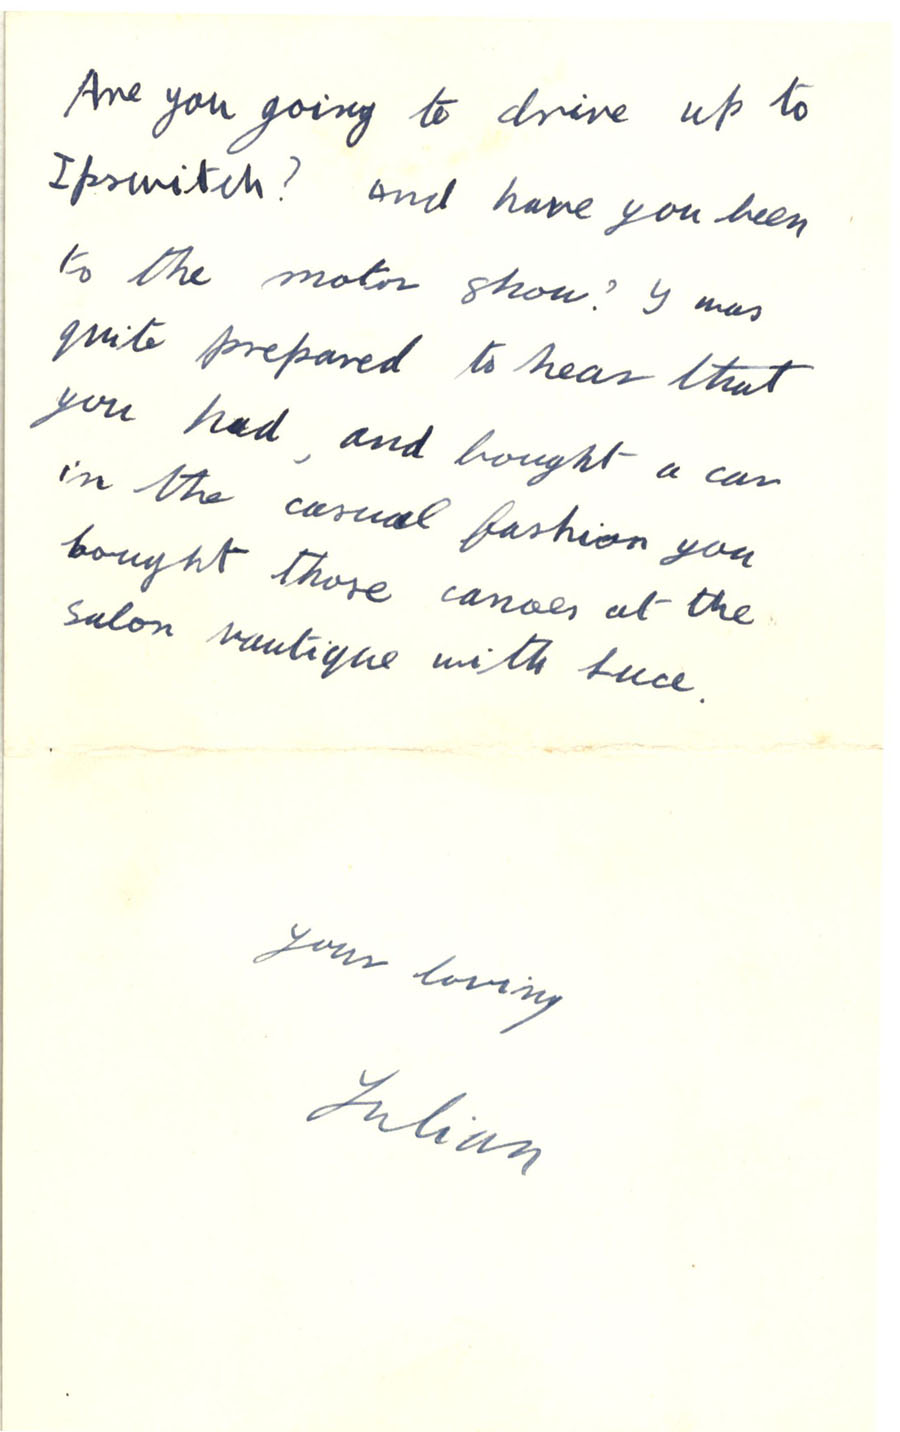 Are you going to drive up to
Ipswitch? And have you been
to the motor show? I was
quite prepared to hear that
you had, and bought a car
in the casual fashion you
bought those canoes at the
salon nautique with Luce.
your loving
Julian